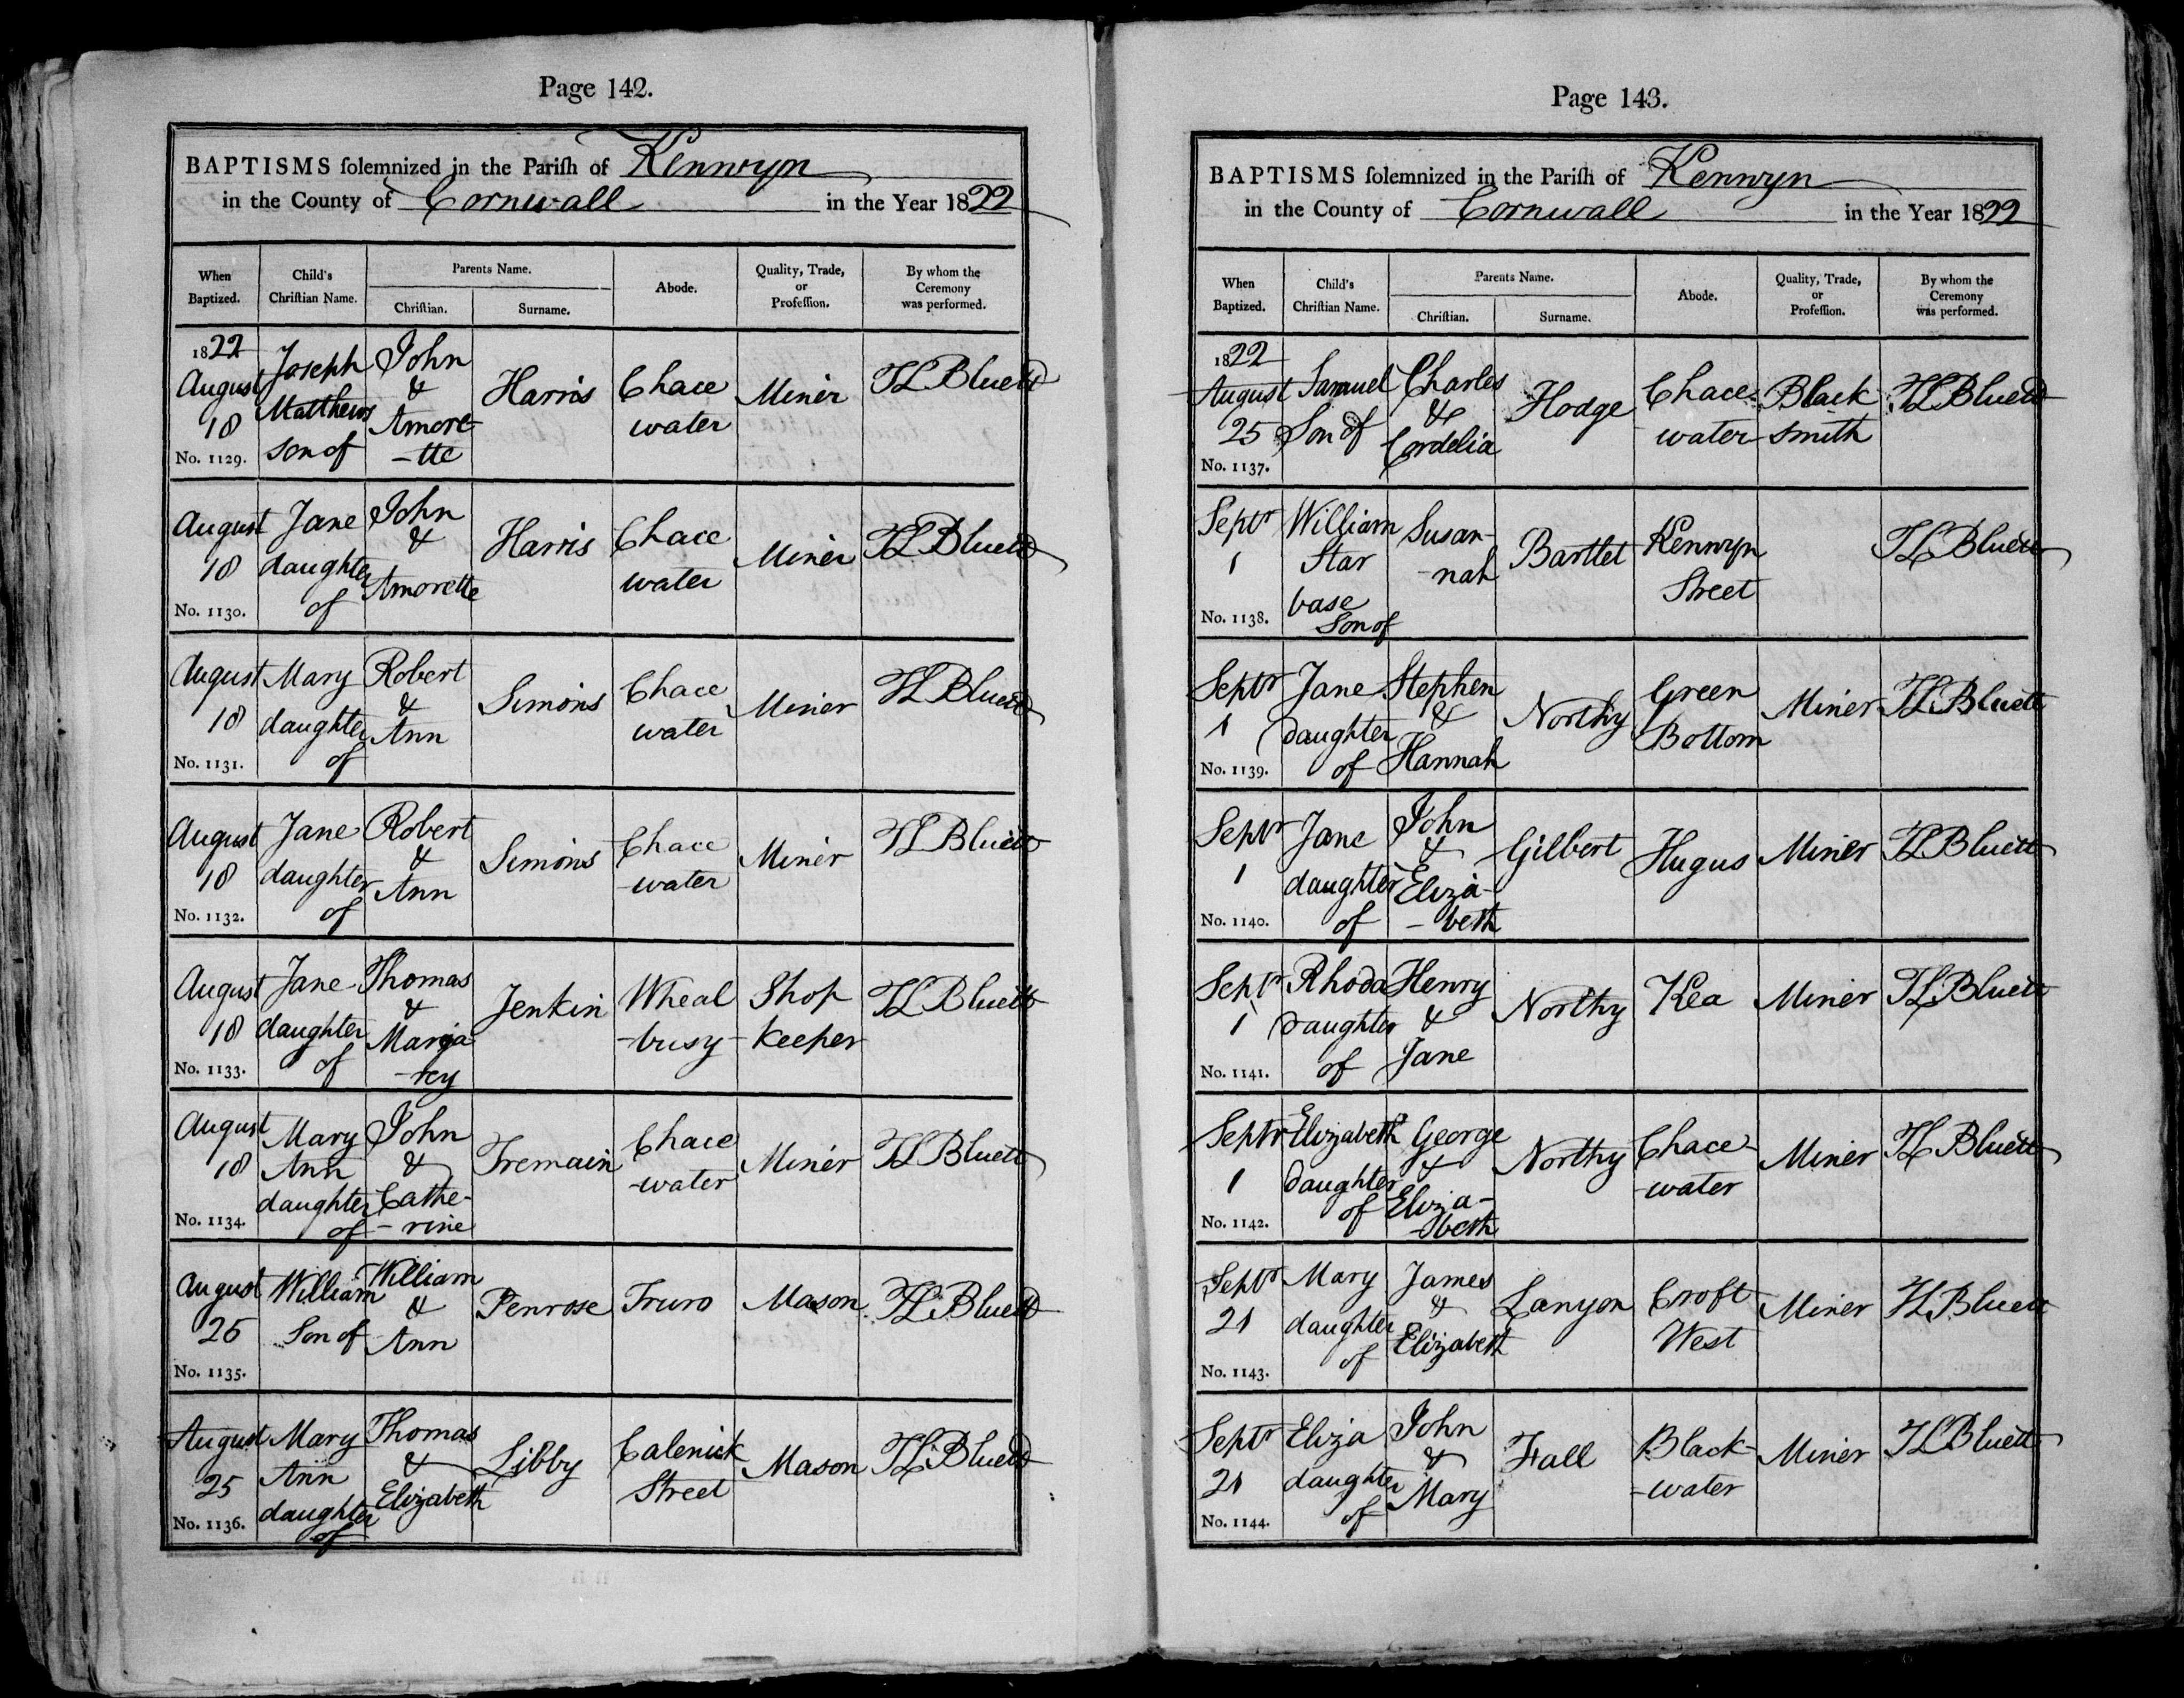 Page 142.
BAPTISMS solemnized in the Parish of Kenwyn
in the County of Cornwall in the Year 1822
When Baptized. Child's Christian Name. Parents Name. Christian. Surname. Abode. Quality, Trade, or Profession. By whom the Ceremony was performed.
1822 August 18 No. 1129. Joseph Matthews son of John & Amore-tte Harris Chace water Miner TL Bluett
August 18 No. 1130. Jane daughter of John & Amorette Harris Chace water Miner TL Bluett
August 18 No. 1131. Mary daughter of Robert & Ann Simons Chace water Miner TL Bluett
August 18 No. 1132. Jane daughter of Robert & Ann Simons Chace -water Miner TL Bluett
August 18 No. 1133. Jane daughter of Thomas & Marja-rey Jenkin Wheal -busy Shop keeper TL Bluett
August 18 No. 1134. Mary Ann daughter of John & Cathe--rine Tremain Chace -water Miner TL Bluett
August 25 No. 1135. William Son of William & Ann Penrose Truro Mason TL Bluett
August 25 No. 1136. Mary Ann daughter of Thomas & Elizabeth Libby Calenick Street Mason TL Bluett
Page 143.
BAPTISMS solemnized in the Parish of Kenwyn
in the County of Cornwall in the Year 1822
When Baptized. Child's Christian Name. Parents Name. Christian. Surname. Abode. Quality, Trade, or Profession. By whom the Ceremony was performed.
1822 August 25 No. 1137. Samuel Son of Charles & Cordelia Hodge Chace-water Black smith TL Bluett
Septr 1 No. 1138. William Star base Son of Susan--nah Bartlet Kenwyn Street TL Bluett
Septr 1 No. 1139. Jane daughter of Stephen & Hannah Northy Green Bottom Miner TL Bluett
Septr 1 No. 1140. Jane daughter of John & Eliza--beth Gilbert Hugus Miner TL Bluett
Septr 1 No. 1141. Rhoda daughter of Henry & Jane Northy Kea Miner TL Bluett
Septr 1 No. 1142. Elizabeth daughter of George & Eliza--beth Northy Chace--water Miner TL Bluett
Septr 21 No. 1143. Mary daughter of James & Elizabeth Lanyon Croft West Miner TL Bluett
Septr 21 No. 1144. Eliza daughter of John & Mary Fall Black--water Miner TL Bluett